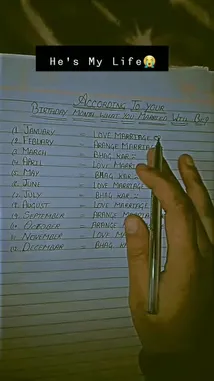 He's My Life😭
ACCORDING TO YOUR
BIRTHDAY MONTH WHAT YOU MARRIED WILL BE?
1). JANUARY = LOVE MARRIAGE
2). FEBUARY = ARANGE MARRIAG
3). MARCH = BHAG KAR
4). APRIL = LOVE MARRI
5). MAY = BHAG KAR
6). JUNE = LOVE MARRIAGE
7). JULY = BHAG KAR
8). AUGUST = LOVE MARRIAGE
9). SEPTEMBER = ARANGE MARRIA
10). OCTOBER = ARANGE M
11). NOVEMBER = LOVE MA
12). DECEMBAR = BHAG KA